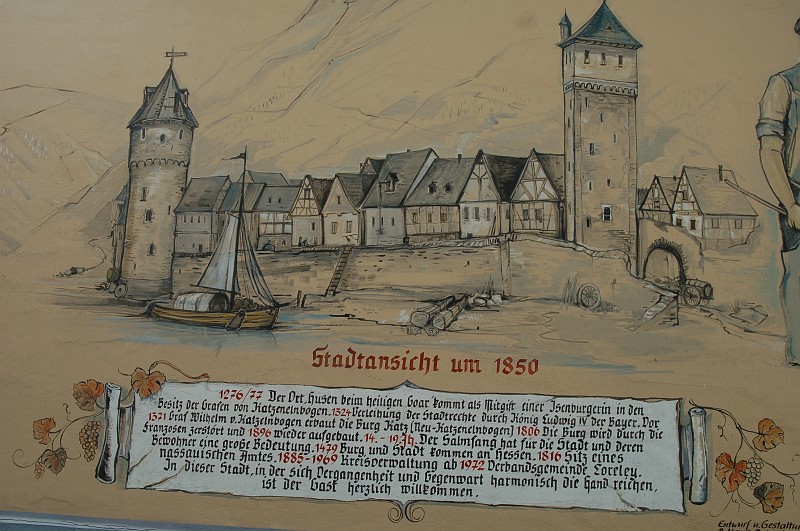 Stadtansicht um 1850
1276/77 Der Ort, Husen beim heiligen Goar kommt als Mitgift einer Isenburgerin in den
Besitz der Grafen von Katzenelnbogen. 1324 Verleihung der Stadtrechte durch König Ludwig IV der Bayer. Vor
1371 Graf Wilhelm v. Katzenelnbogen erbaut die Burg Katz (Neu-Katzenelnbogen) 1806 Die Burg wird durch die
Franzosen zerstört und 1896 wieder aufgebaut. 14. - 19. Jh. Der Salmfang hat für die Stadt und deren
Bewohner eine große Bedeutung. 1479 Burg und Stadt kommen an Hessen. 1816 Sitz eines
nassauischen Amtes. 1885-1969 Kreisverwaltung ab 1972 Verbandsgemeinde Loreley.
In dieser Stadt, in der sich Vergangenheit und Gegenwart harmonisch die Hand reichen,
ist der Gast herzlich willkommen.
Entwurf u. Gestaltu